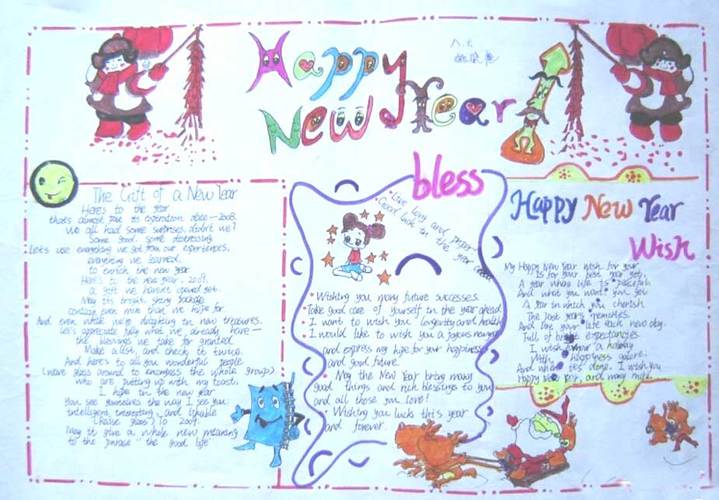 Happy
New Year!
bless
Happy New Year
Wish
The Gift of a New Year
Here's to the year
that's almost put to expiration date — 2008.
We all had some surprises, didn't we?
Some good, some distressing.
Let's use everything we got from our experiences,
everything we learned,
to enrich the new year
Here's to the new year, 2009,
a gift we haven't opened yet.
May its bright, shiny package
contain even more than we hope for.
And even while we're delighting in new treasures,
Let's appreciate fully what we already have —
the blessings we take for granted.
Make a list, and check it twice.
And here's to all you wonderful people
(wave glass around to encompass the whole group)
who are putting up with my toast.
I hope in the new year
You see yourselves the way I see you:
intelligent, interesting and likable
(raise glass) To 2009.
May it give a whole new meaning
to the phrase "the good life"
Live long and
Good luck in the year
Wishing you many future successes.
Take good care of yourself in the year ahead
I want to wish you longevity and health
I would like to wish you a joyous new
and express my hope for your happiness
and good future.
May the New Year bring many
good things and rich blessings to you
and all those you love!
Wishing you lucks this year
and forever.
My Happy New Year wish for you
Is for your best year yet,
A year where life is peaceful
And what you want you get
A year in which you cherish
The past year's memories
And live your life each new day,
Full of bright expectancies
I wish you a holiday
With happiness galore;
And when it's done, I wish you
Happy New Year, and many more.